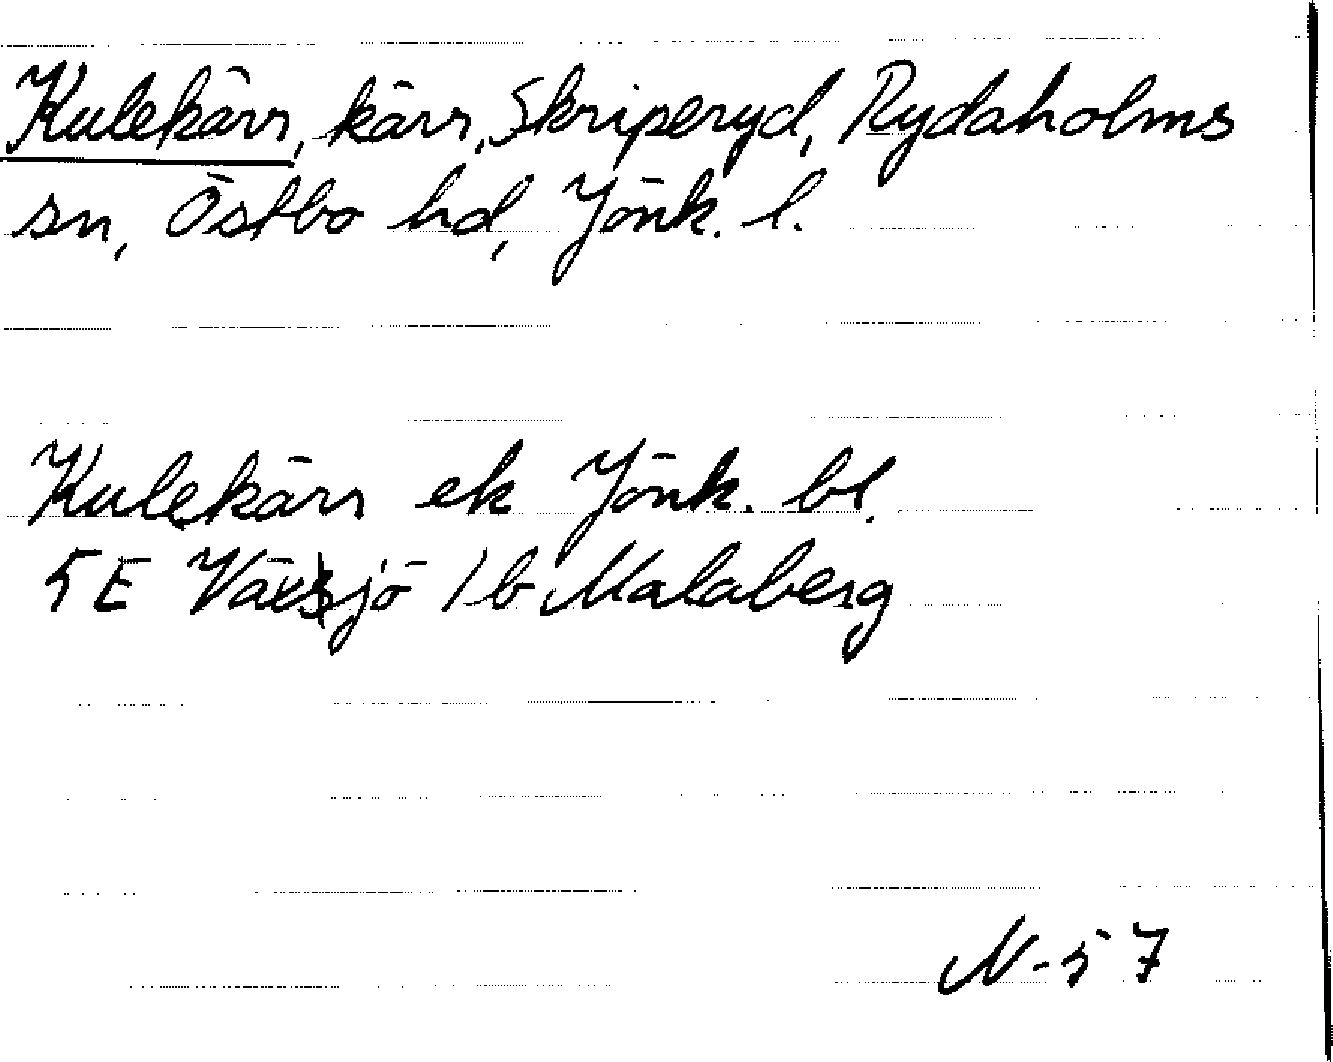 Kulekärr, kärr, Skriperyd, Rydaholms
sn, Östbo hd, Jönk. l.
Kulekärr ek Jönk. bl.
5E Växjö 1b Malaberg
N-57